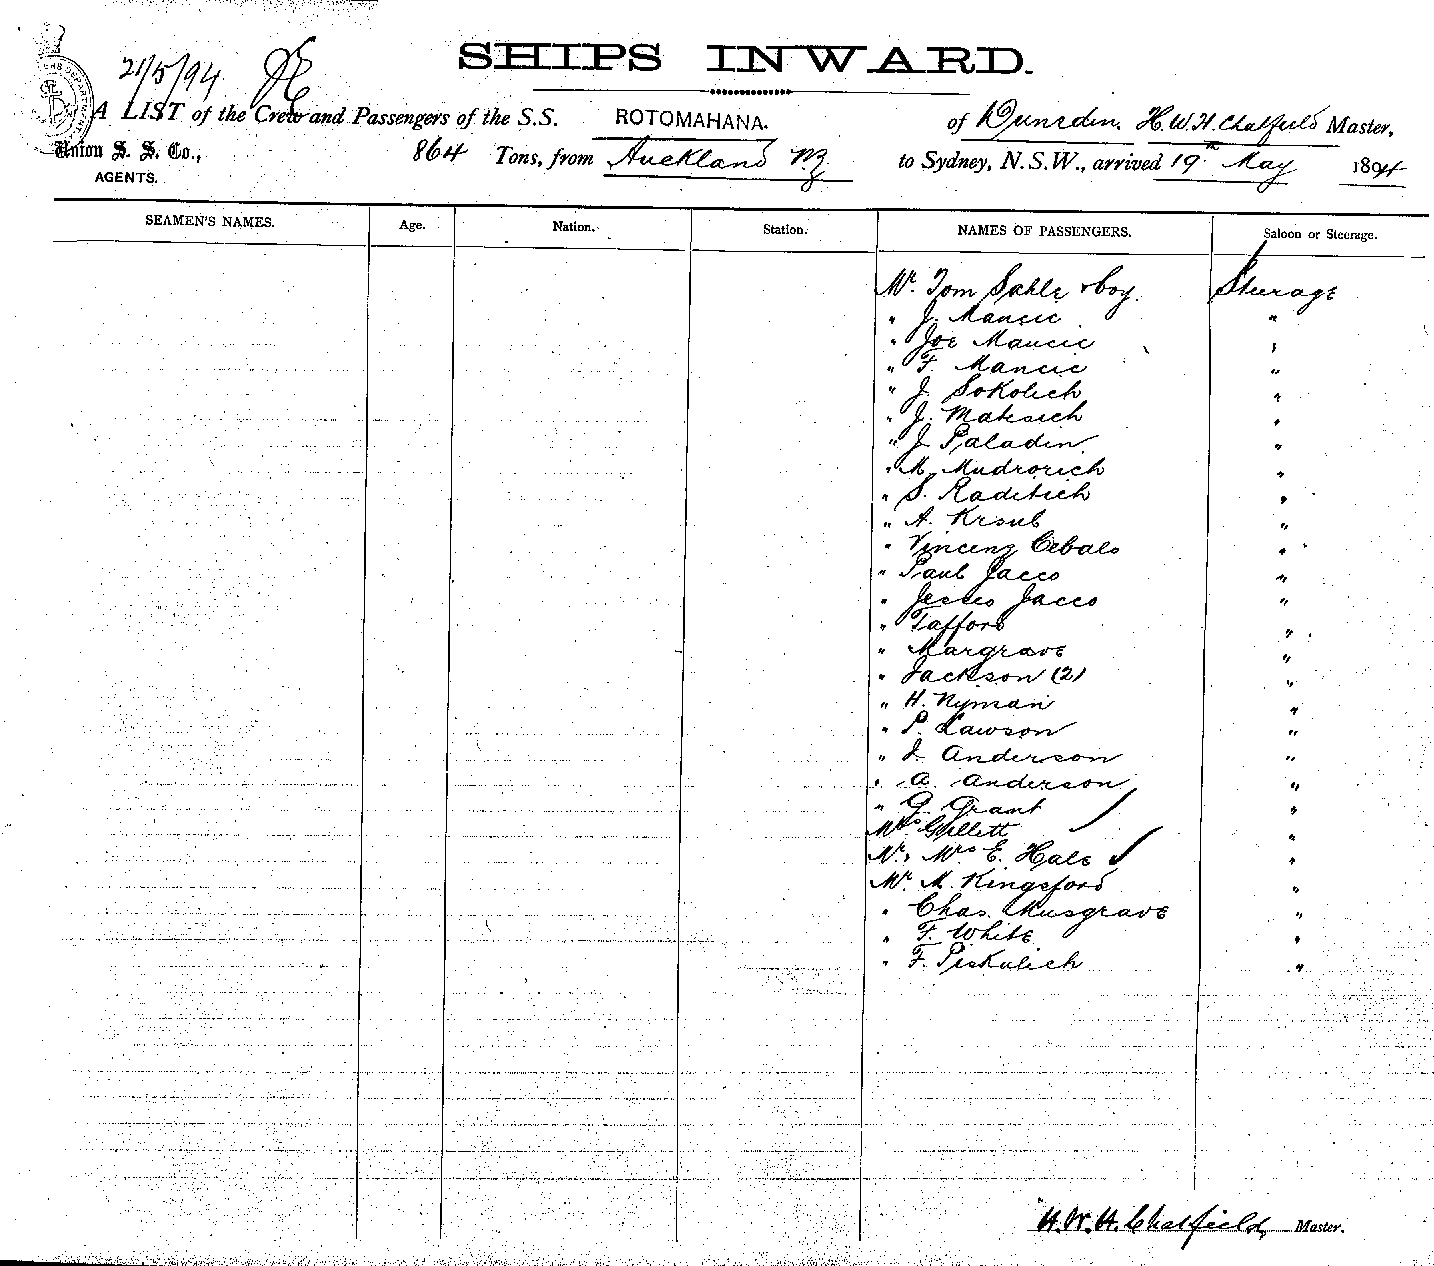 21/5/94
SHIPS INWARD.
A LIST of the Crew and Passengers of the S.S. ROTOMAHANA. of Dunedin, H.W.H. Chatfield Master,
Union S. S. Co., 864 Tons, from Auckland N.Z. to Sydney, N.S.W., arrived 19th May 1894
AGENTS.
SEAMEN'S NAMES. Age. Nation. Station. NAMES OF PASSENGERS. Saloon or Steerage.
Mr. Tom Sahle & boy. Steerage
" J. Mancic "
" Joe Mancic "
" F. Mancic "
" J. Sokolich "
" J. Matesich "
" J. Paladin "
" M. Mudrorich "
" S. Raditich "
" A. Krsul "
" Vincenz Cebalo "
" Paul Jacco "
" Jacco "
" Tafford "
" Margrave "
" Jackson (2) "
" H. Nyman "
" P. Lawson "
" J. Anderson "
" A. Anderson "
" G. Grant "
Mrs Gullett "
Mr. Mrs E. Hale "
Mr. M. Kingsford "
" Chas. Musgrave "
" F. White "
" F. Piskulich "
H.W.H. Chatfield Master.